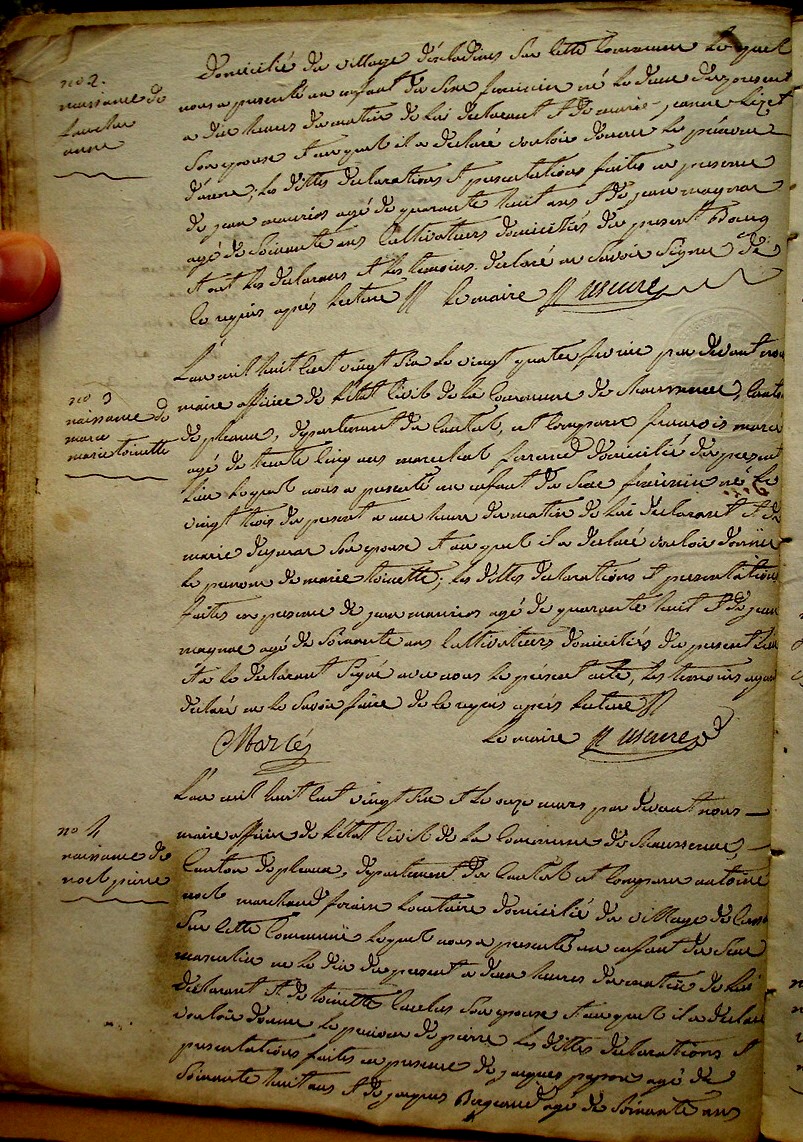 no 2.
naissance de
anne
domicilié du village d'escladines sur cette Commune lequel
nous a presenté un enfant du sexe feminin né le du present
a dix heures du matin de lui declarant et de marie jeanne
son epouse et auquel il a declaré vouloir donner le prénom
d'anne, les dittes declarations et presentations faites en presence
de jean mauries agé de quarante huit ans et de jean maynac
agé de soixante ans cultivateurs domiciliés du present Bourg
et ont les declarans et les temoins declaré ne savoir signer de
ce requis aprés lecture le maire
no 3
naissance de
marce
marie toinette
L'an mil huit cent vingt six le vingt quatre fevrier par devant nous
maire officier de l'état Civil de la Commune de Chaussenac, Canton
de pleaux, département du Cantal, est Comparu françois marce
agé de trente Cinq ans marechal ferrand domicilié du present
Lieu lequel nous a presenté un enfant du sexe feminin né le
vingt trois du present a une heure du matin de lui declarant et de
marie son epouse et auquel il a declaré vouloir donner
le prenom de marie toinette, les dittes declarations et presentations
faites en presence de jean mauries agé de quarante huit et de jean
maynac agé de soixante ans Cultivateurs domiciliés du present Lieu
et a le declarant signé avec nous le présent acte, les temoins ayant
declaré ne le savoir faire de ce requis aprés lecture
Marcé le maire
no 4
naissance de
noel pierre
L'an mil huit cent vingt six et le onze mars par devant nous
maire officier de l'état Civil de la Commune de Chaussenac,
Canton de pleaux, département du Cantal est Comparu antoine
noel marchand forain locataire domicilié du village de
sur cette Commune lequel nous a presenté un enfant du sexe
masculin né le dix du present a deux heures du matin de lui
declarant et de toinette son epouse et auquel il a declaré
vouloir donner le prenom de pierre les dittes declarations et
presentations faites en presence de jacques agé de
soixante huit ans et de jacques agé de soixante ans